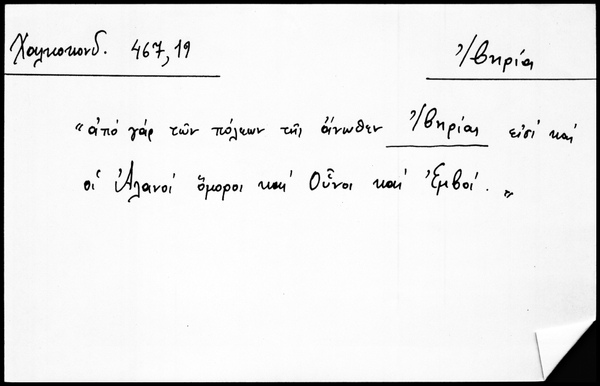 Χαλκοκονδ. 467,19
Ἰβηρία
"ἀπό γάρ τῶν πόλεων τῆς ἄνωθεν Ἰβηρίας εἰσί καί
οἱ Ἀλανοί ὅμοροι καί Οὖνοι καί Ἐμβοί."